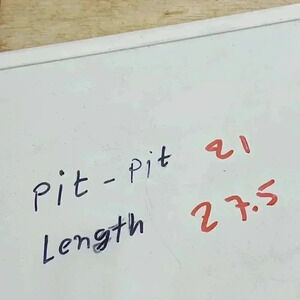 Pit - Pit 21
Length 27.5